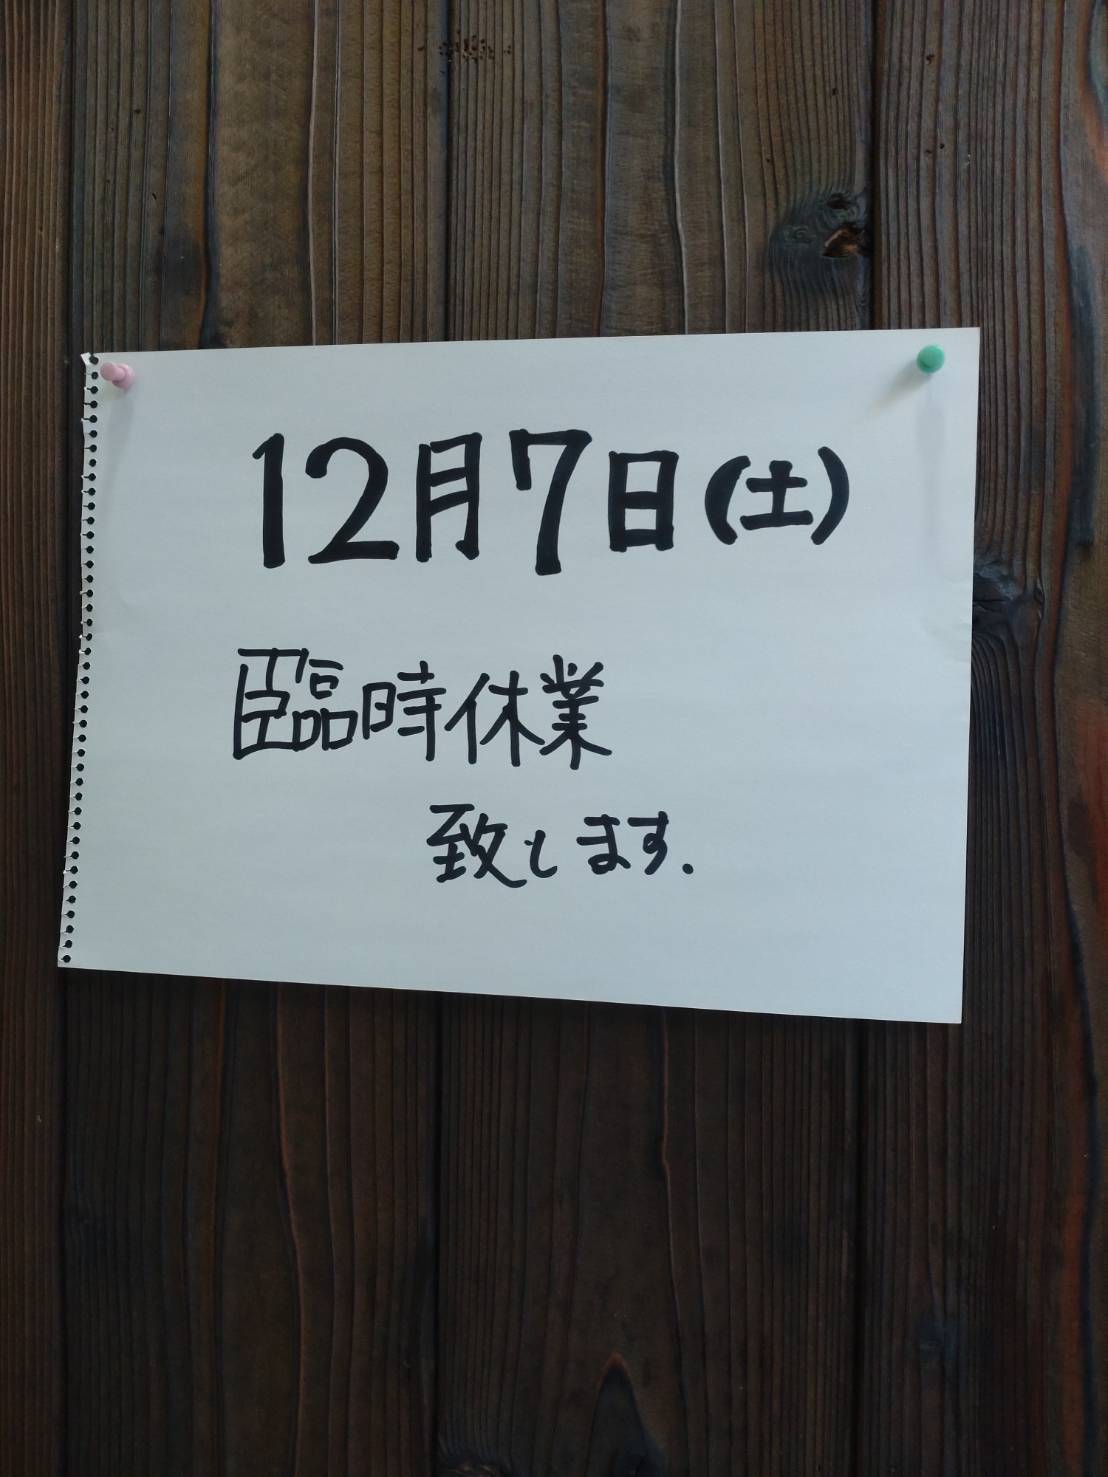 12月7日(土)
臨時休業
致します.